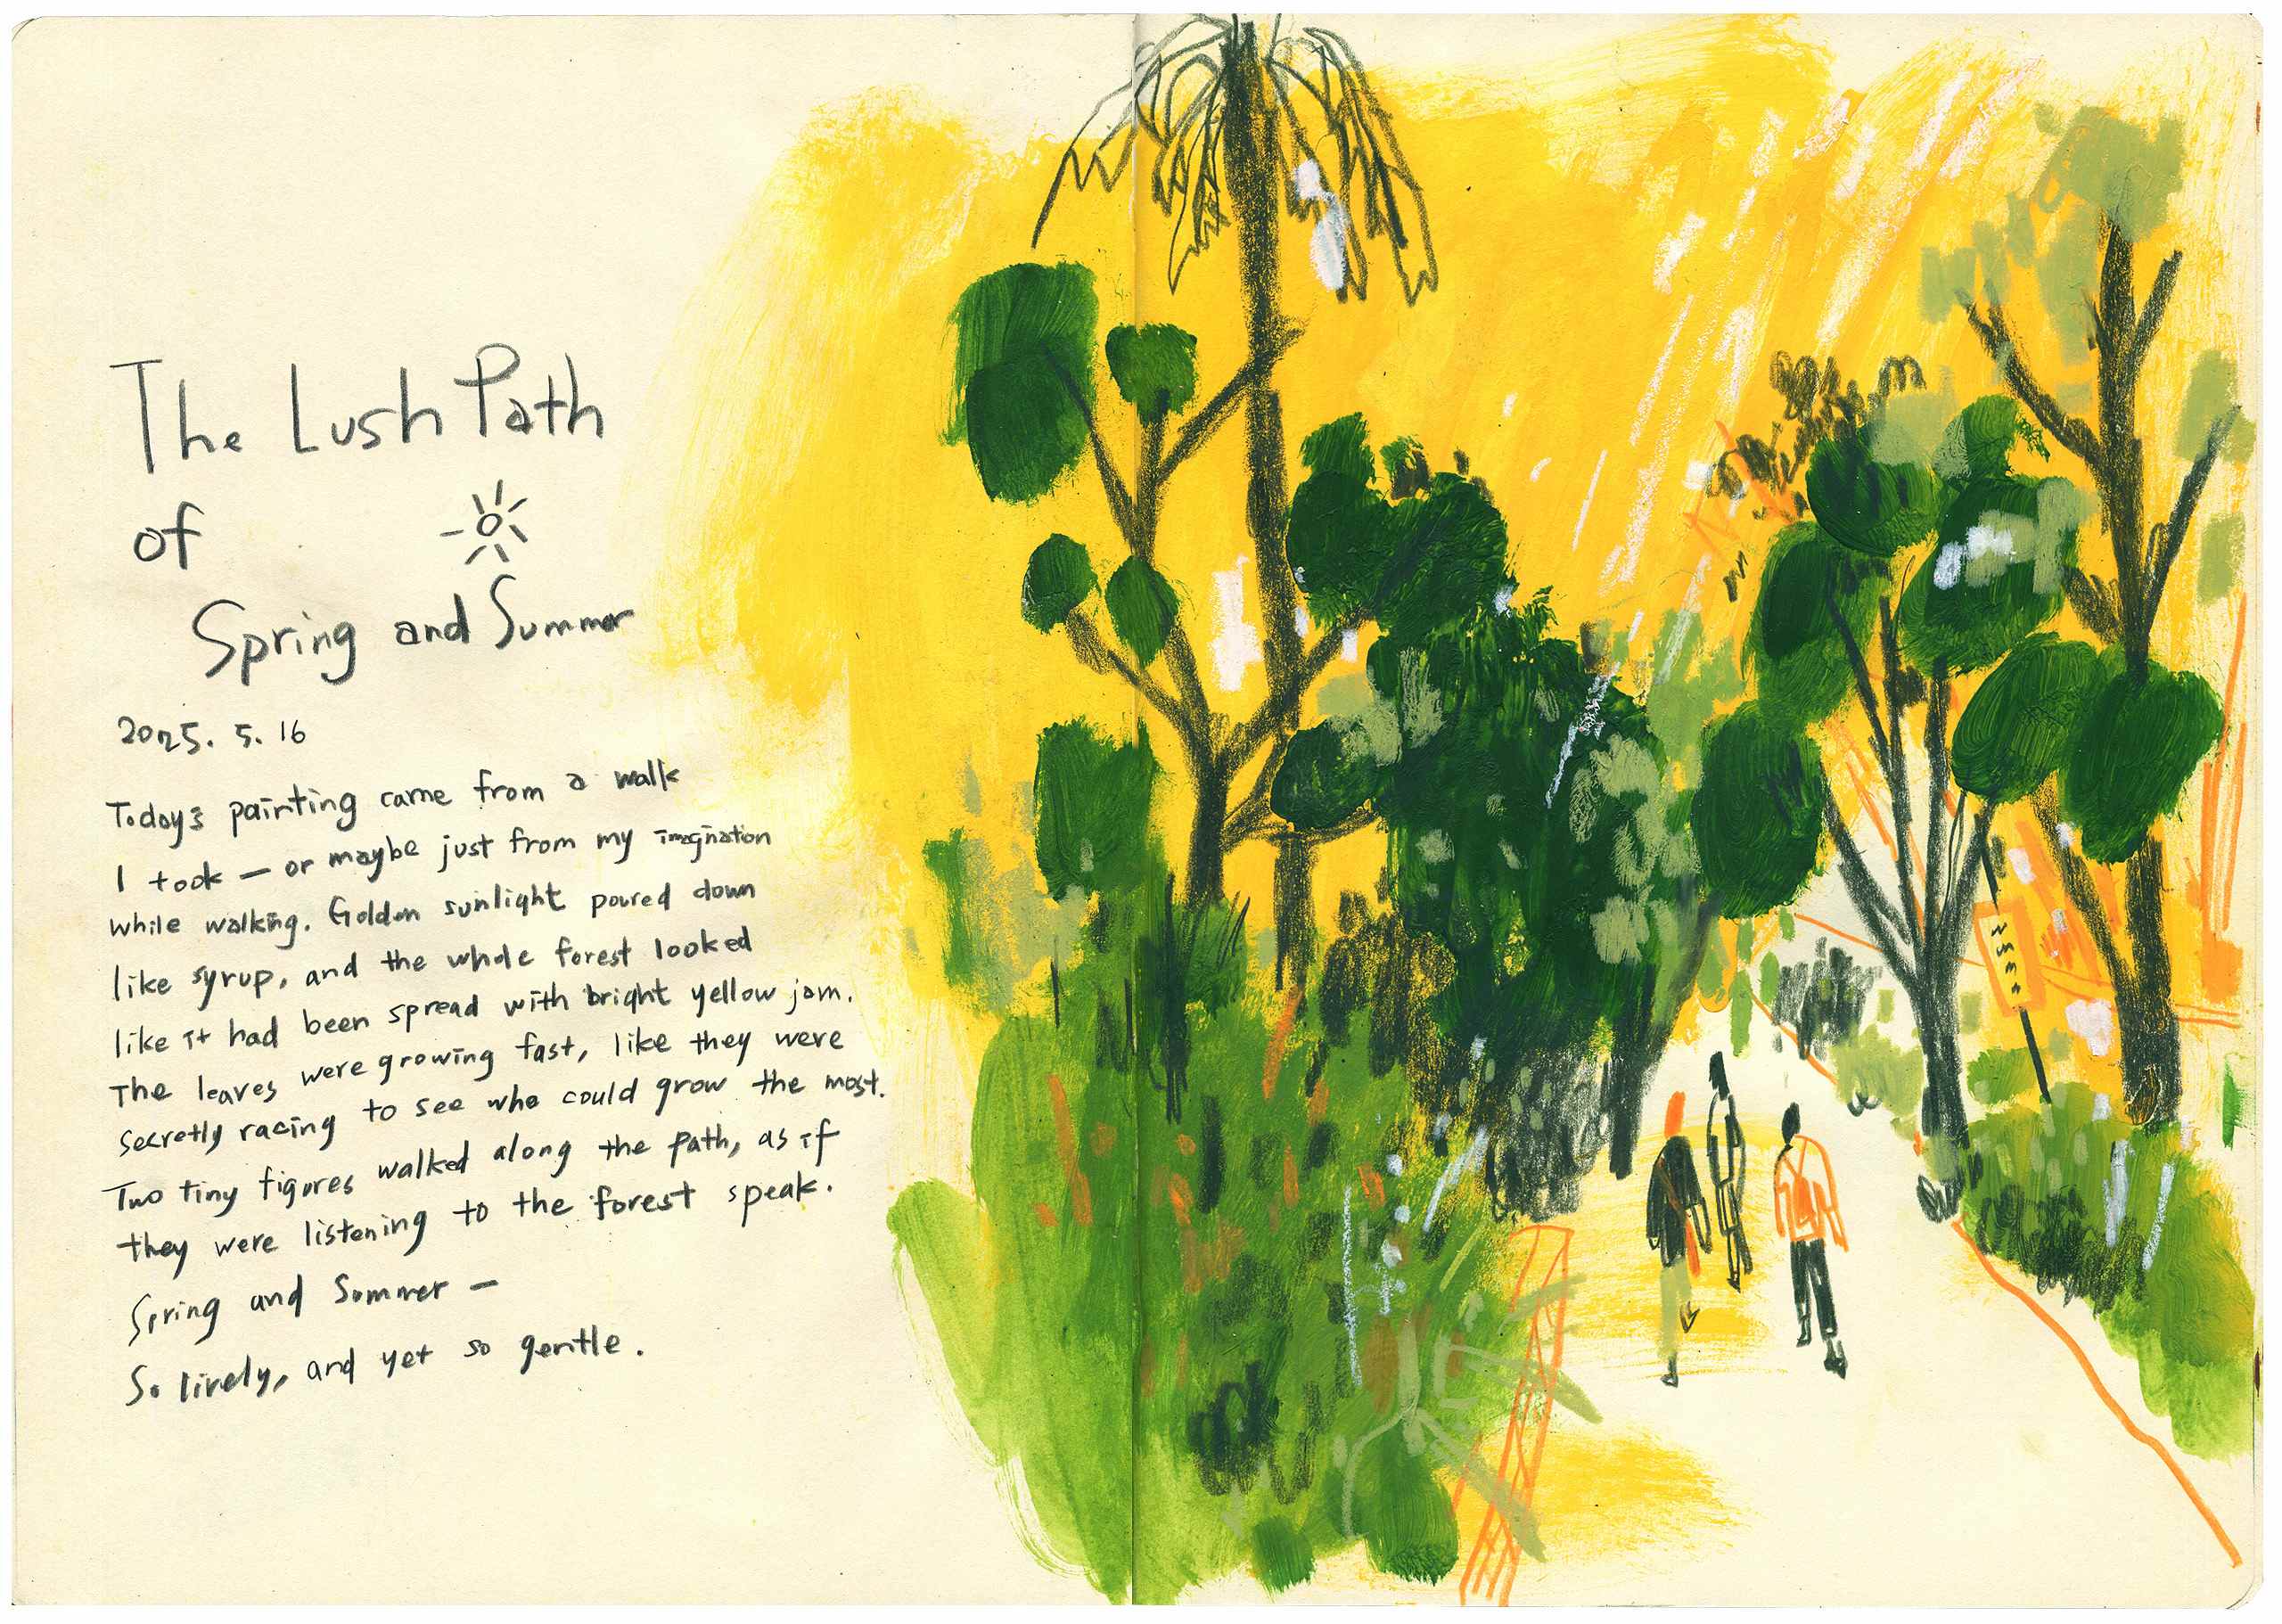 The Lush Path
of
Spring and Summer
2025. 5. 16
Today's painting came from a walk
I took — or maybe just from my imagination
while walking. Golden sunlight poured down
like syrup, and the whole forest looked
like it had been spread with bright yellow jam.
The leaves were growing fast, like they were
secretly racing to see who could grow the most.
Two tiny figures walked along the path, as if
they were listening to the forest speak.
Spring and Summer —
So lively, and yet so gentle.